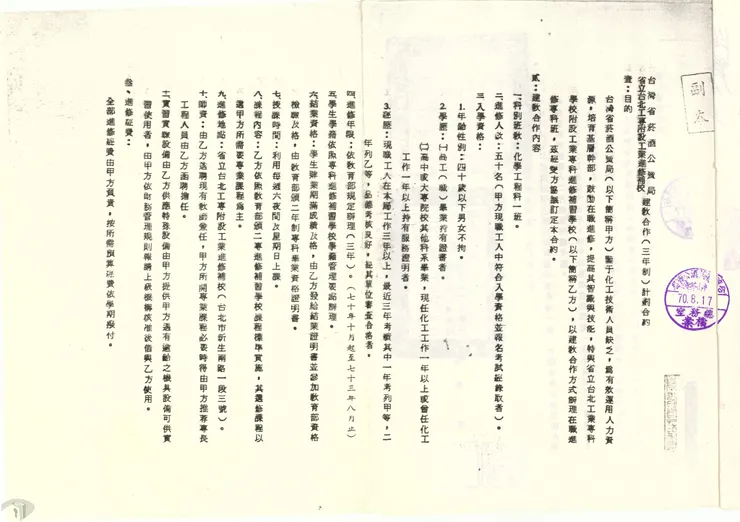 副本
台灣省菸酒公賣局
省立台北工專附設工業進修補校
建教合作（三年制）計劃合約
壹：目的
台灣省菸酒公賣局（以下簡稱甲方）鑒于化工技術人員缺乏，為有效運用人力資
源，培育基層幹部，鼓勵在職進修，提高其智識與技能，特與省立台北工業專科
學校附設工業專科進修補習學校（以下簡稱乙方），以建教合作方式辦理在職進
修專科班，茲經雙方協議訂定本合約。
貳：建教合作內容
一、科別班數：化學工程科一班。
二、進修人數：五十名（甲方現職工人中符合入學資格並報名考試經錄取者）。
三、入學資格：
1.年齡性別：四十歲以下男女不拘。
2.學歷：(一)高工（職）畢業持有證書者。
(二)高中或大專院校其他科系畢業，現任化工工作一年以上或曾任化工
工作一年以上持有服務證明者。
3.經歷：現職工人在本局工作三年以上，最近三年考績其中一年考列甲等，二
年列乙等，品德考核良好，經其單位審查合格者。
四、進修年限：依教育部規定辦理（三年）。（七十年十月起至七十三年八月止）
五、學生學籍依照專科進修補習學校學籍管理要點辦理。
六、結業資格：學生肄業期滿成績及格，由乙方發給結業證明書並參加教育部資格
檢驗及格，由教育部頒二年制專科畢業資格證明書。
七、授課時間：利用每週六夜間及星期日上課。
八、課程內容：乙方依照教育部頒二專進修補習學校課程標準實施，其選修課程以
選甲方所需要專業課程為主。
九、進修地點：省立台北工專附設工業進修補校（台北市新生南路一段三號）。
十、師資：由乙方遴聘現有教師兼任，甲方所開專業課程必要時得由甲方推荐專長
工程人員由乙方函聘擔任。
十一、實習實驗設備由乙方供應特殊設備由甲方提供甲方遇有適齡之機具設備可供實
習使用者，由甲方依財務管理規則報請上級機構核准後借與乙方使用。
叁、進修經費：
全部進修經費由甲方負責，按所需預算經費依學期撥付。
70.8.17
總務室
檔案